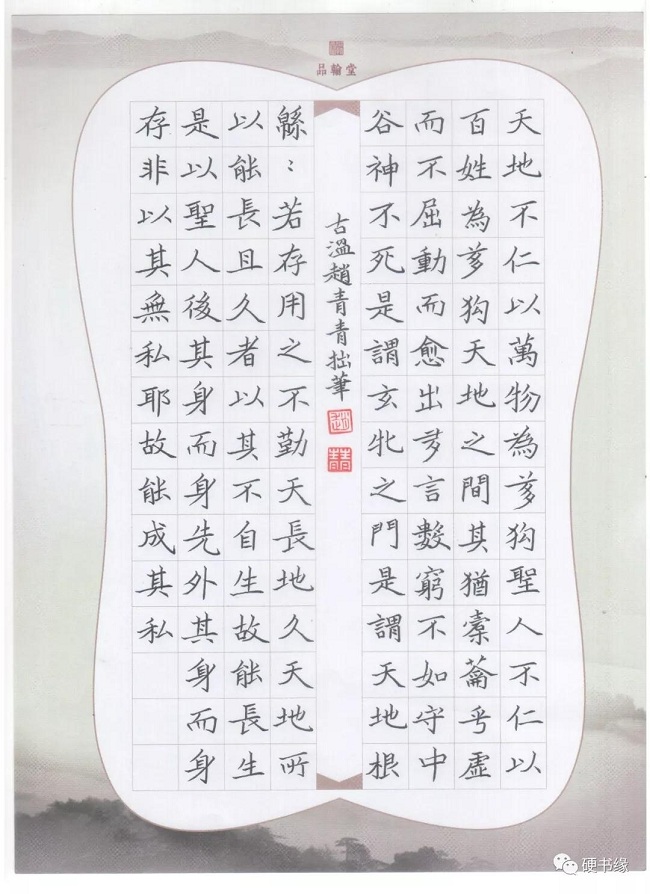 品翰堂
天地不仁以萬物為芻狗聖人不仁以
百姓為芻狗天地之間其猶橐蘥乎虛
而不屈動而愈出多言數窮不如守中
谷神不死是謂玄牝之門是謂天地根
古溫趙青青拙筆
趙
青青
緜〻若存用之不勤天長地久天地所
以能長且久者以其不自生故能長生
是以聖人後其身而身先外其身而身
存非以其無私耶故能成其私
硬书缘